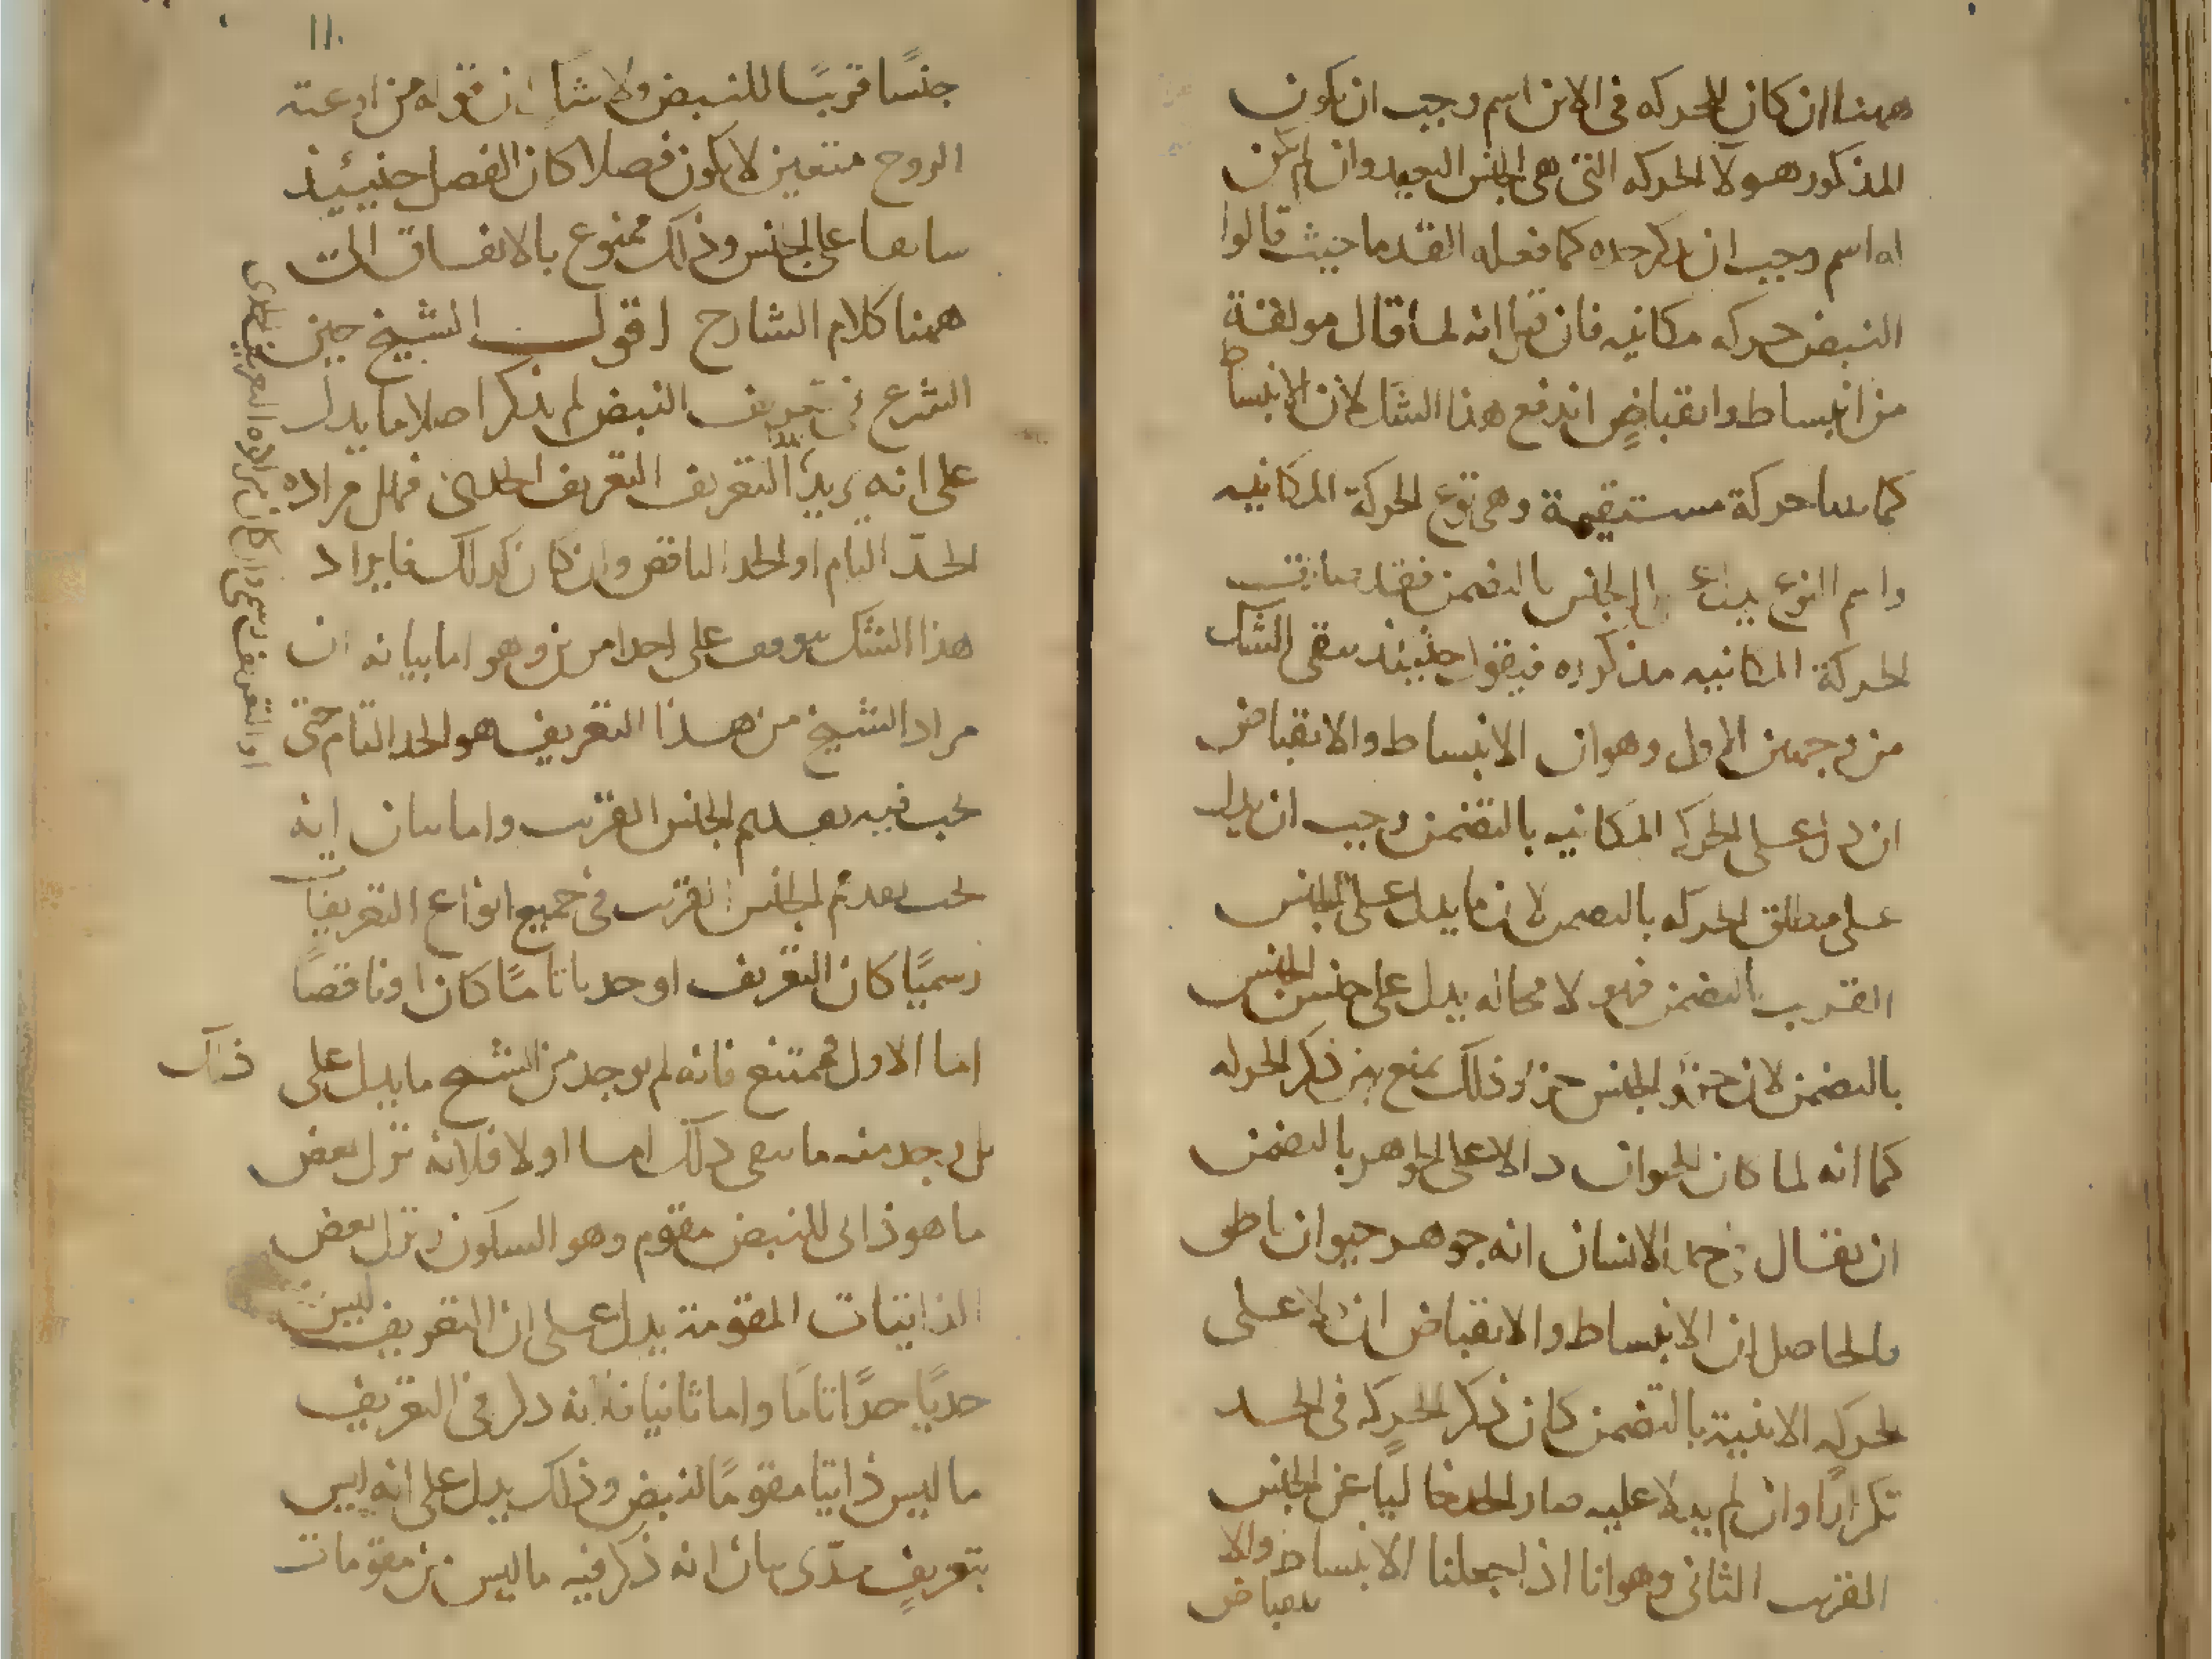 ههنا ان كان للحركه فى الاين اسم وجب ان يكون
المذكور هو لا الحركه التى هى الجنس البعيد وان لم يكن
له اسم وجب ان يذكر حده كما فعله القدما حيث قالوا
النبض حركه مكانيه فان قيل انه لما قال مولفة
من انبساط وانقباضٍ اندفع هذا الشك لان الانبساط
كما حركة مستقيمة وهى نوع الحركة المكانيه
واسم النوع يدل على الجنس بالتضمن فقد صارت
الحركة المكانيه مذكوره فيقول حينيئذ يبقى الشك
من وجهين الاول وهو ان الانبساط والانقباض
ان دل على الحركه المكانيه بالتضمن وجب ان يدل
على مطلق الحركه بالتضمن لان ما يدل على الجنس
القريب بالتضمن فهو لا محاله يدل على جنس الجنس
بالتضمن لان جزؤ الجنس جزؤ وذلك يمنع من ذكر الحركه
كما انه لما كان الحيوان دالا على الجوهر بالتضمن
ان يقال فى حد الانسان انه جوهر حيوان ناطق
فالحاصل ان الانبساط والانقباض ان دلا على
الحركه الاينية بالتضمن كان ذكر الحركه فى الحد
تكرارًا وان لم يدلا عليه صار الحد خاليًا عن الجنس
القريب الثانى وهو انا اذا جعلنا الانبساط والا
نقباض
١١٠
جنسًا قريبًا للنبض ولا شك ان قوله من اوعية
الروح متعين لا يكون فصلا كان الفصل حينيئيذ
سابقا على الجنس وذلك ممنوع بالاتفاق الى
ههنا كلام الشارح اقول الشيخ حين
الشرع فى تعريف النبض لم يذكر اصلا ما يدل
على انه يريد بهذا التعريف التعريف الحدى فهل مراده
الحدّ التام او الحد الناقص وان كان كذلك فايراد
هذا الشك موقوف على احد امرين وهو اما بيانه ان
مراد الشيخ من هذا التعريف هو الحد التام حتى
يجب فيه تقديم الجنس القريب واما بيان انه
يجب تقديم الجنس القريب فى جميع انواع التعريفات
رسميًا كان التعريف او حديا تامًا كان او ناقصًا
اما الاول فممتنع فانه لم يوجد من الشيخ ما يدل على ذلك
بل وجد منه ما ينفى ذلك اما اولا فلانه ترك بعض
ما هو ذاتى للنبض مقوم وهو السكون وترك بعض
الذاتيات المقومة يدل على ان التعريف ليس
حديًا حدًا تامًا واما ثانيا فانه ذكر فى التعريف
ما ليس ذاتيا مقومًا للنبض وذلك يدل على انه ليس
بتعريفٍ حدّى بيان انه ذكر فيه ما ليس من مقومات
او التعريف الرسمى وان كان مراده التعريف الحدى